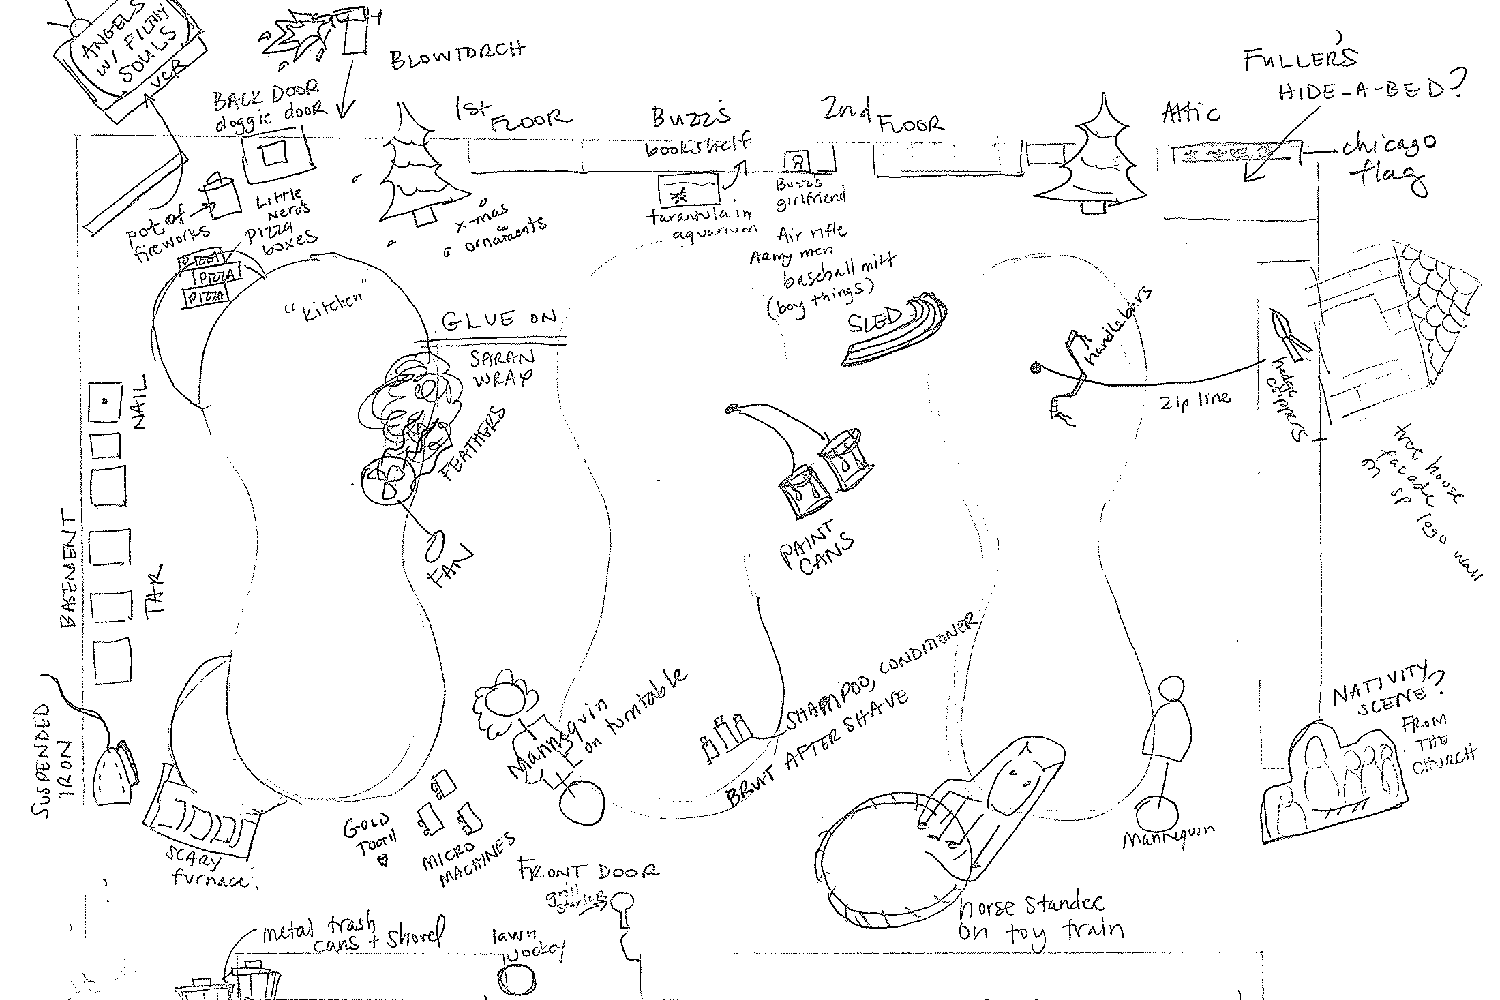 ANGELS
W/ FILTHY
SOULS
VCR
BLOWTORCH
BACK DOOR
doggie door
1st FLOOR
BUZZ'S
bookshelf
2nd FLOOR
Attic
FULLER'S
HIDE-A-BED?
chicago
flag
pot of
fireworks
Little
Nero's
PIZZA
boxes
PIZZA
PIZZA
PIZZA
x-mas
ornaments
tarantula in
aquarium
Buzz's
girlfriend
Air rifle
Army men
baseball mitt
(boy things)
"Kitchen"
GLUE ON
SARAN
WRAP
SLED
handlebars
zip line
hedge
clippers
tree house
facade
on sp lego wall
NAIL
FEATHERS
FAN
PAINT
CANS
BASEMENT
TAR
SUSPENDED
IRON
Mannequin
on turntable
SHAMPOO, CONDITIONER
BRUT AFTER SHAVE
NATIVITY
SCENE?
FROM
THE
CHURCH
SCARY
furnace
GOLD
TOOTH
MICRO
MACHINES
Mannequin
FRONT DOOR
horse standee
on toy train
metal trash
cans + shovel
lawn
jockey